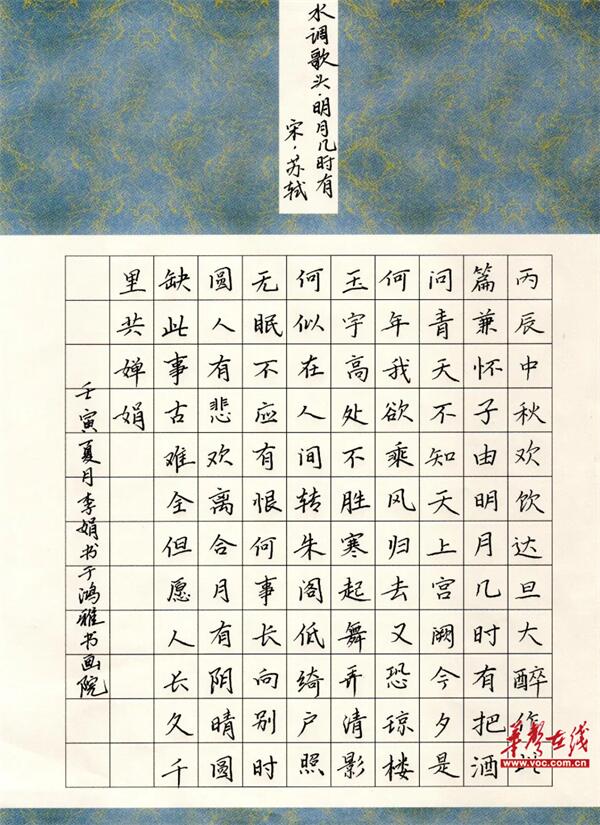 水调歌头·明月几时有
宋·苏轼
丙辰中秋欢饮达旦大醉作
篇兼怀子由明月几时有把酒
问青天不知天上宫阙今夕是
何年我欲乘风归去又恐琼楼
玉宇高处不胜寒起舞弄清影
何似在人间转朱阁低绮户照
无眠不应有恨何事长向别时
圆人有悲欢离合月有阴晴圆
缺此事古难全但愿人长久千
里共婵娟
壬寅夏月李娟书于鸿雅书画院
華聲在线
www.voc.com.cn